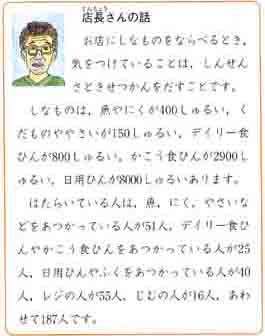 てんちょう
店長さんの話
お店にしなものをならべるとき,
気をつけていることは, しんせん
さときせつかんをだすことです。
しなものは, 魚やにくが400しゅるい, く
だものややさいが150しゅるい, デイリー食
ひんが800しゅるい, かこう食ひんが2900し
ゅるい, 日用ひんが8000しゅるいあります。
はたらいている人は, 魚, にく, やさいな
どをあつかっている人が51人, デイリー食ひ
んやかこう食ひんをあつかっている人が25
人, 日用ひんやふくをあつかっている人が40
人, レジの人が55人, じむの人が16人, あわ
せて187人です。